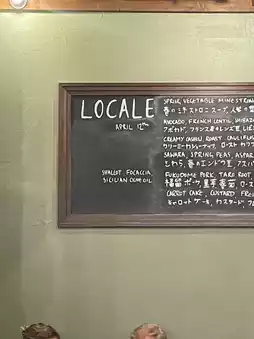 LOCALE
APRIL 12TH
SHALLOT FOCACCIA,
SICILIAN OLIVE OIL
SPRING VEGETABLE MINESTRON
春のミネストローネスープ、
AVOCADO, FRENCH LENTIL,
アボカド、フランス産レンズ豆、
CREAMY CASHEW, ROAST CAULIFL
クリーミーカシューナッツ、ロースト カリフ
SAWARA, SPRING PEAS, ASPAR
さわら、春のエンドウ豆、アスパ
FUKUDOME PORK, TARO ROOT,
福留ポーク、
CARROT CAKE, CUSTARD
キャロットケーキ、カスタード